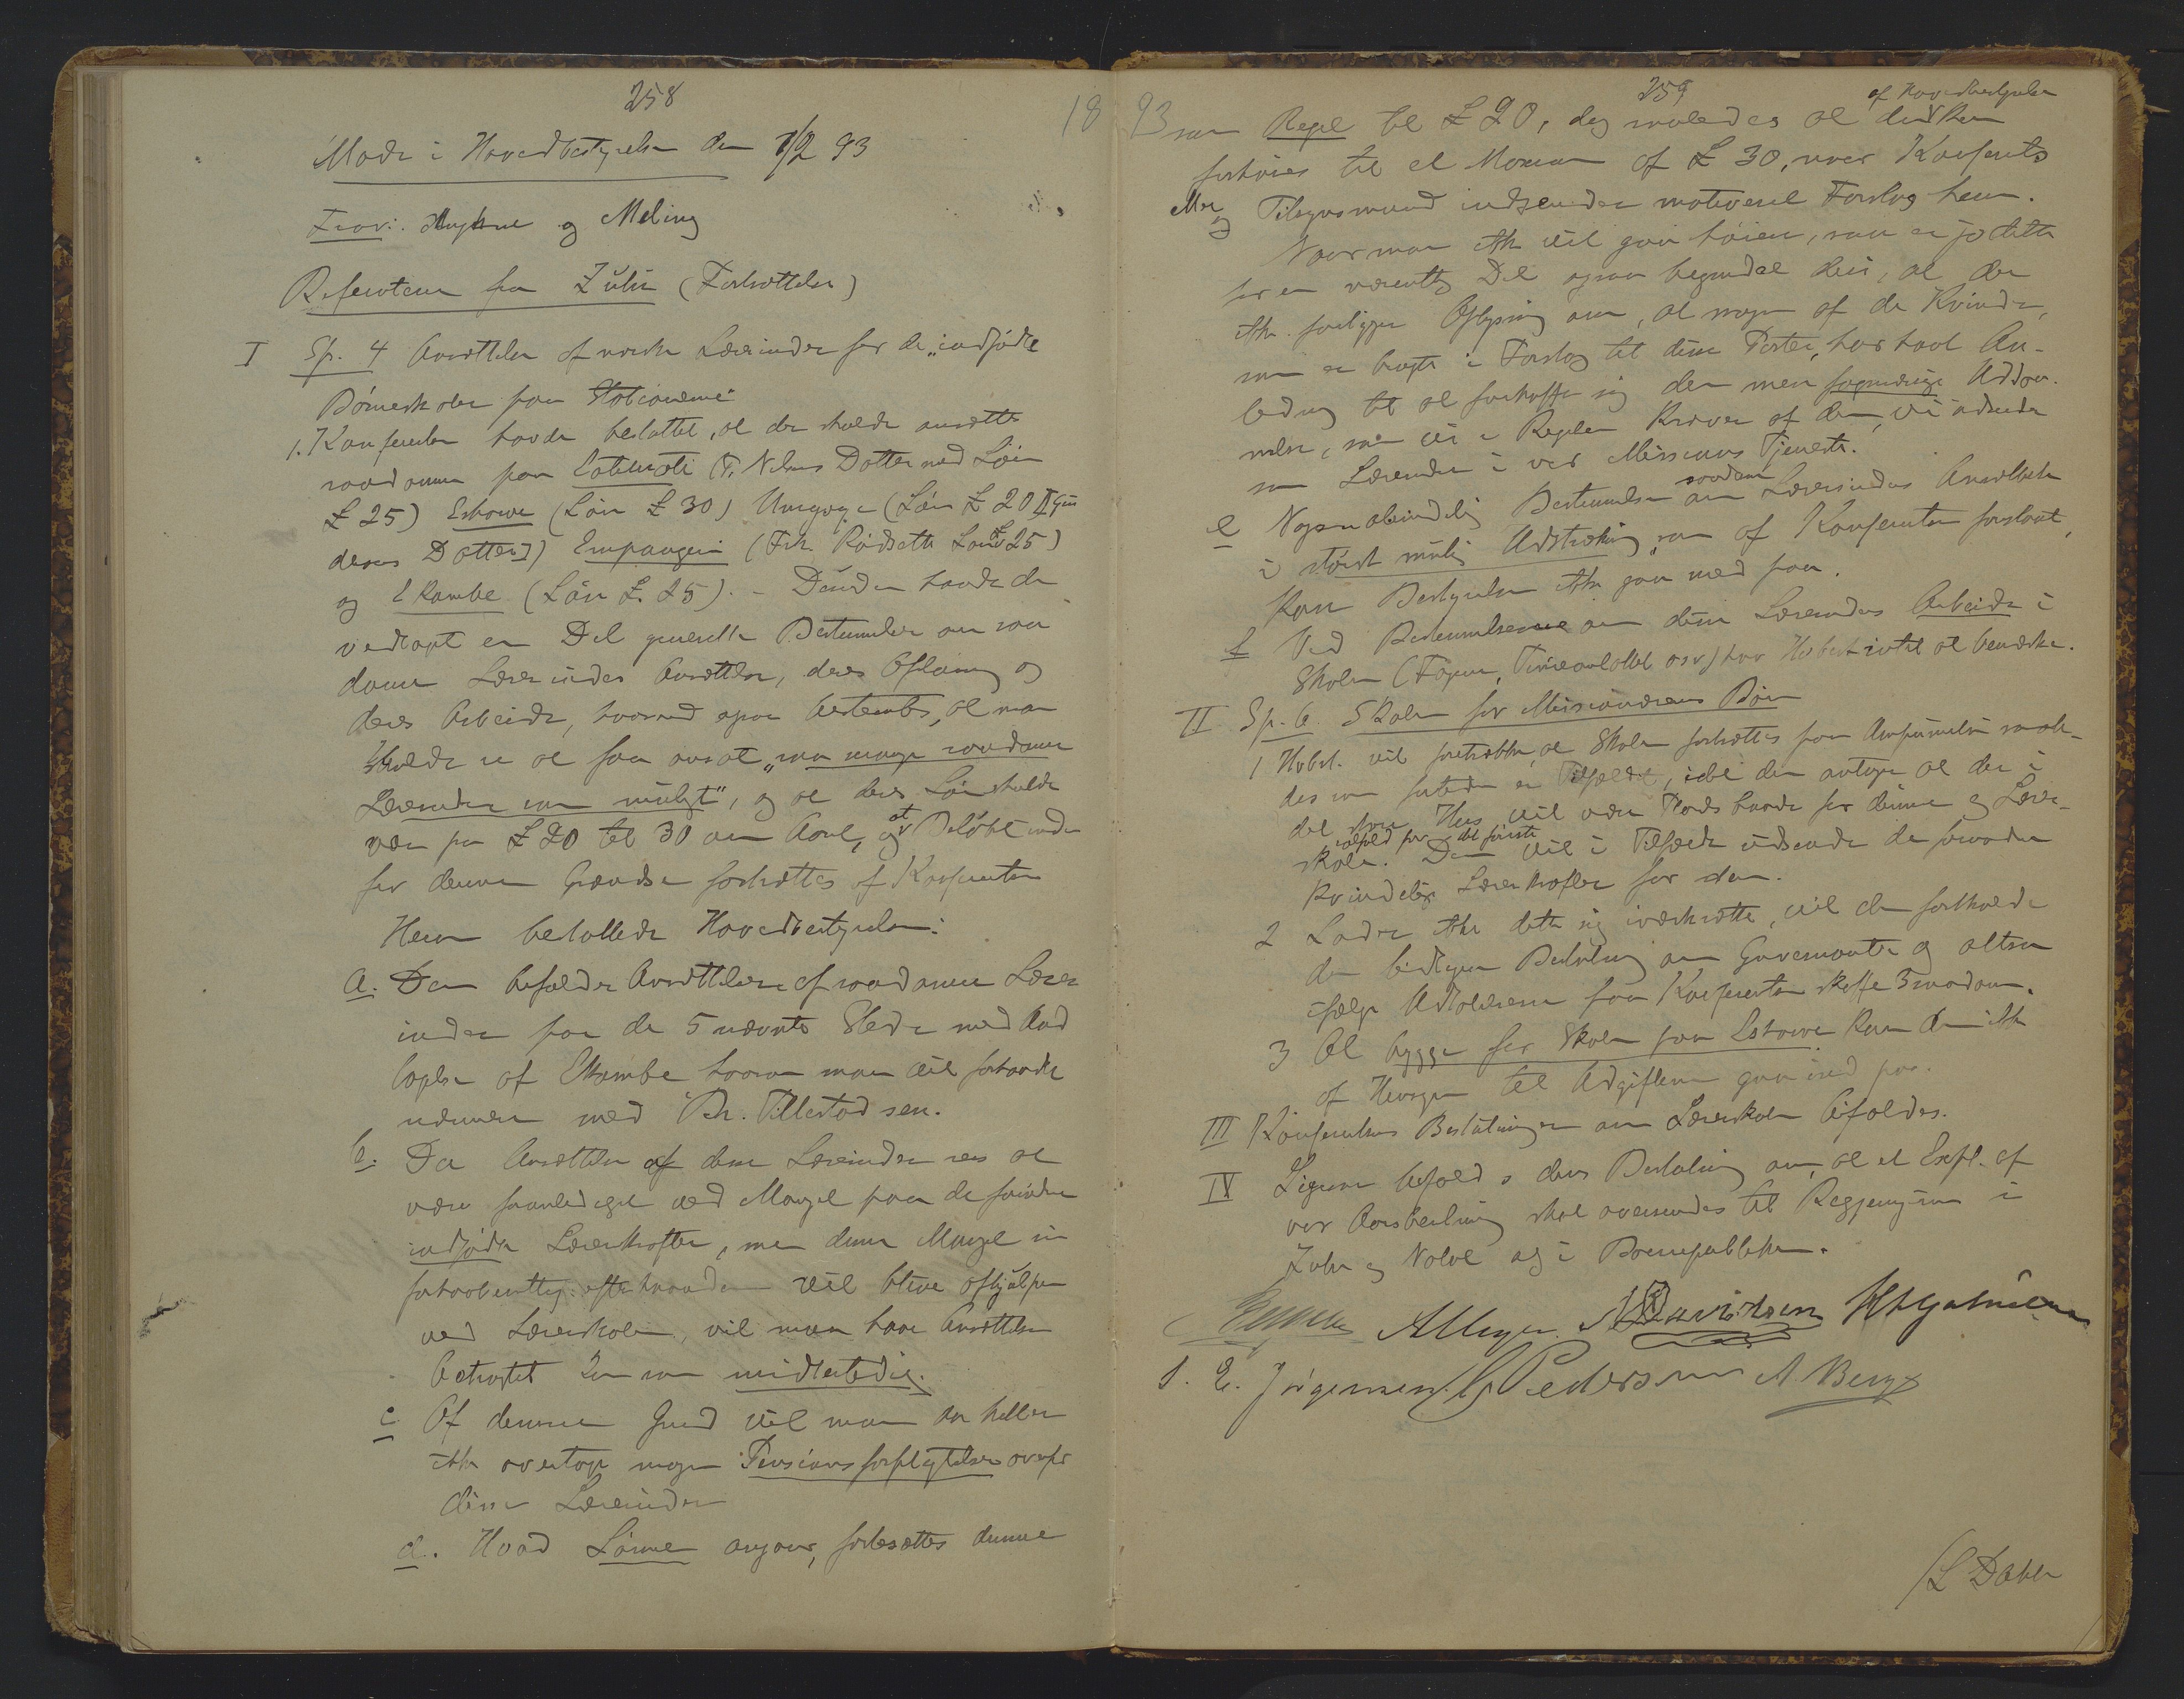 258
Møde i Hovedbestyrelsen den 1/2 93
Frav: og Meling
Referaterne fra Zulu (Fortsættelse)
I Sp. 4 Ansættelse af norske Lærerinder for de "indfødte
Børneskoler paa Stationerne"
1. Konferentsen havde besluttet, at der skulde ansættes
saadanne paa Entumeni (T. Nilsens Datter med Løn
£ 25) Eshowe (Løn £ 30) Umgoye (Løn £ 20 [Gun
dersens Datter]) Empangeni (Frk. Rødseth Løn £ 25)
og Ekombe (Løn £. 25). - Desuden havde den
vedtaget en Del generelle Bestemmelser om saa
danne Lærerinders Ansættelse, deres Aflønning og
deres Arbeide, hvorved ogsaa bestemtes, at man
skulde se at faa ansat "saa mange saadanne
Lærerinder som muligt", og at deres Løn skulde
være fra £ 20 til 30 om Aaret, og at Beløbet inden
for denne Grændse fastsættes af Konferentsen
Herom besluttede Hovedbestyrelsen:
a. Den bifalder Ansættelsen af saadanne Lærer
inder paa de 5 nævnte Steder med Und
tagelse af Ekombe hvorom man vil forhandle
nærmere med Br. Tillestadsen.
b. Da Ansættelsen af disse Lærerinder sees at
være foranlediget ved Mangel paa de fornødne
indfødte Lærerkræfter, men denne Mangel jo
forhaabentlig efterhaanden vil blive afhjulpen
ved Lærerskolen, vil man have Ansættelsen
betragtet kun som midlertidig.
c. Af denne Grund vil man da heller
ikke overtage nogen Pensionsforpligtelse overfor
disse Lærerinder
d. Hvad Lønnen angaar, fastsættes denne
18 93
259
som Regel til £ 20, dog saaledes at den af Hovedbestyrelsen kan
forhøies til et Maximum af £ 30, naar Konferents
og Tilsynsmand indsender motiveret Forslag herom.
Naar man ikke vil gaa høiere, saa er jo dette
for en væsentlig Del ogsaa begrundet deri, at der
ikke foreligger Oplysning om, at nogen af de Kvinder,
som er bragte i Forslag til disse Poster, har havt An-
ledning til at forskaffe sig den mere fagmæssige Uddan-
nelse, som vi i Regelen kræver af dem, vi udsender
som Lærerinder i vor Missions Tjeneste.
e Nogen almindelig Bestemmelse om saadan Lærerindes Ansættelse
i størst mulig Udstrækning, som af Konferentsen foreslaaet,
kan Bestyrelsen ikke gaa med paa.
f Ved Bestemmelserne om disse Lærerinders Arbeide i
Skolen (Fagene, Timeantallet osv) har Hvbest. intet at bemærke.
II Sp. 6. Skolen for Missionærernes Børn
1 Hvbst. vil foretrække, at Skolen fortsættes paa Umpumulo saale-
des som fortiden er Tilfældet, idet den antager at der i
det store Hus vil være Plads baade for denne og Lærer-
skolen ialfald for det første. Den vil i Tilfælde udsende de fornødne
kvindelige Lærerkræfter for den.
2 Lader ikke dette sig iværksætte, vil den fastholde
den tidligere Beslutning om Guvernanter og altsaa
ifølge Udtalelserne fra Konferentsen skaffe 3 saadanne.
3 At bygge for Skolen paa Eshowe kan den ikke
af Hensyn til Udgifterne gaa ind paa.
III Konferentsens Beslutninger om Lærerskolen bifaldes.
IV Ligesaa bifaldes dens Beslutning om, at et Expl. af
vor Aarsberetning skal oversendes til Regjeringerne i
Zulu og Natal og i Boerrepubliken.
A Meyer. Davidsen
S. E. Jørgensen. Pedersen A. Berg
/L Dahle